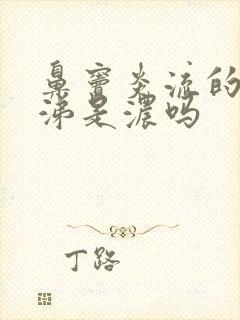 鼻窦炎流的
涕是浓吗
丁路